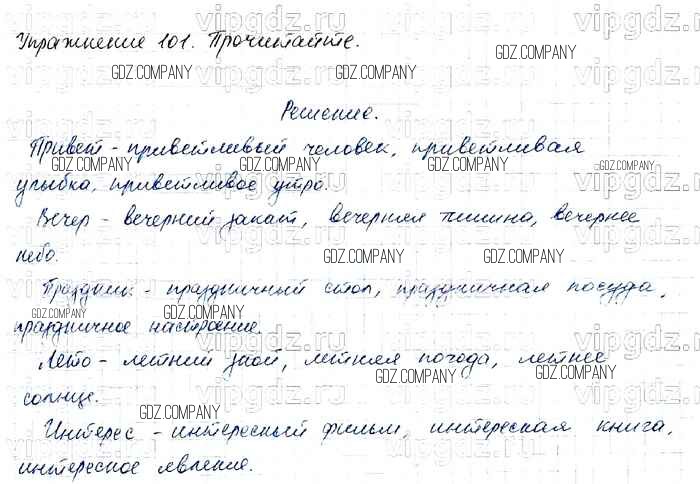 Упражнение 101. Прочитайте.
Решение.
Привет - приветливый человек, приветливая
улыбка, приветливое утро.
Вечер - вечерний закат, вечерняя тишина, вечернее
небо.
Праздник - праздничный стол, праздничная посуда,
праздничное настроение.
Лето - летний зной, летняя погода, летнее
солнце.
Интерес - интересный фильм, интересная книга,
интересное явление.
GDZ.COMPANY
vipgdz.ru